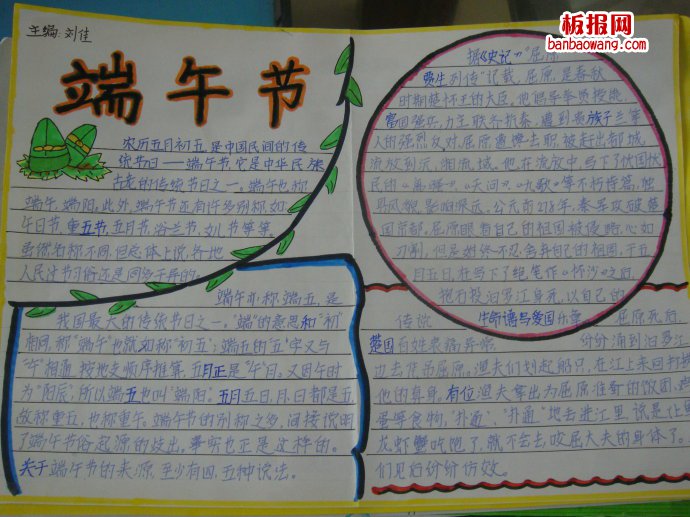 板报网
banbaowang.com
主编:刘佳
端午节
农历五月初五,是中国民间的传
统节日——端午节,它是中华民族
古老的传统节日之一。端午也称
端午,端阳。此外,端午节还有许多别称,如:
午日节,重五节,五月节,浴兰节,女儿节等等。
虽然名称不同,但总体上说,各地
人民过节习俗还是同多于异的。
端午亦称端五,是
我国最大的传统节日之一,"端"的意思和"初"
相同,称"端午"也就如称"初五";端五的"五"字又与
"午"相通,按地支顺序推算,五月正是"午"月。又因午时
为"阳辰",所以端五也叫"端阳"。五月五日,月、日都是五,
故称重五,也称重午。端午节的别称之多,间接说明
了端午节俗起源的歧出。事实也正是这样的。
关于端午节的来源,至少有四、五种说法。
据《史记》"屈原
贾生列传"记载,屈原,是春秋
时期楚怀王的大臣。他倡导举贤授能,
富国强兵,力主联齐抗秦,遭到贵族子兰等
人的强烈反对,屈原遭谗去职,被赶出都城,
流放到沅、湘流域。他在流放中,写下了忧国忧
民的《离骚》、《天问》、《九歌》等不朽诗篇,独
具风貌,影响深远。公元前278年,秦军攻破楚
国京都。屈原眼看自己的祖国被侵略,心如
刀割,但是始终不忍舍弃自己的祖国,于五
月五日,在写下了绝笔作《怀沙》之后,
抱石投汨罗江身死,以自己的
生命谱写爱国乐章
传说 屈原死后,
楚国百姓哀痛异常 纷纷涌到汨罗江
边去凭吊屈原。渔夫们划起船只,在江上来回打捞
他的真身。有位渔夫拿出为屈原准备的饭团、鸡
蛋等食物,"扑通"、"扑通"地丢进江里,说是让鱼
龙虾蟹吃饱了,就不会去咬屈大夫的身体了。
们见后纷纷仿效。